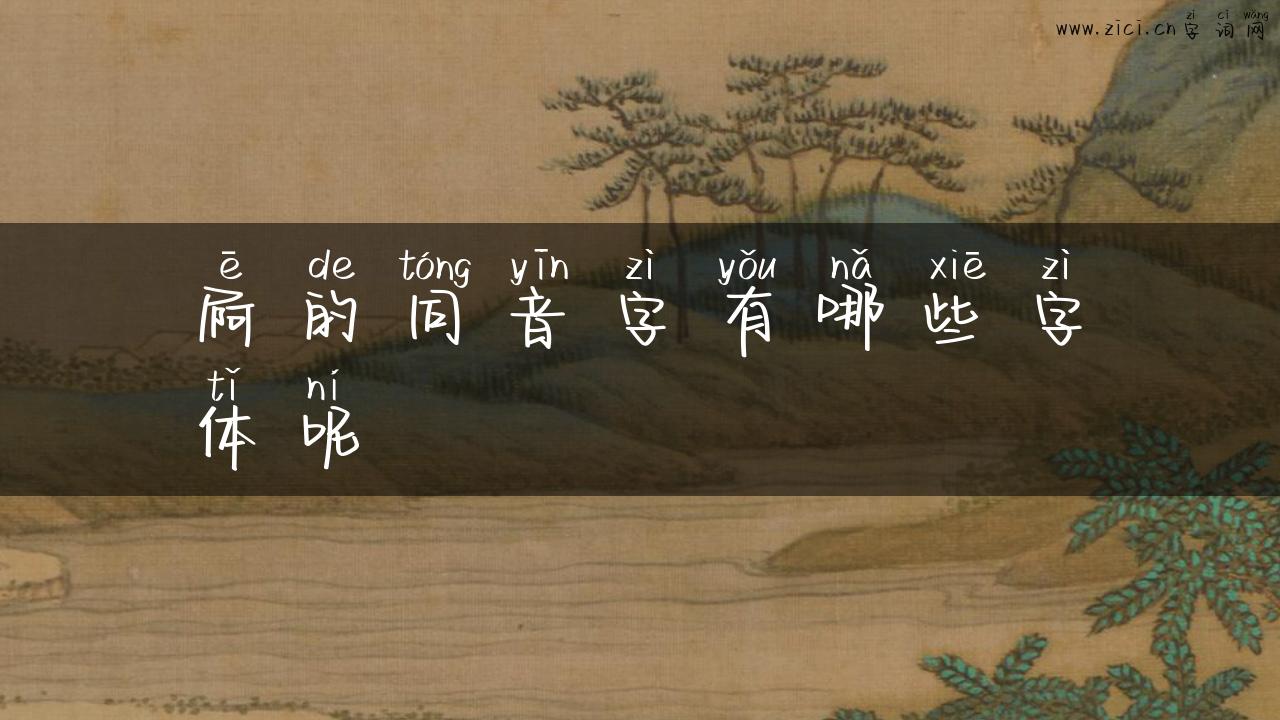 zì cí wǎng
www.zici.cn 字 词 网
ē de tóng yīn zì yǒu nǎ xiē zì
屙 的 同 音 字 有 哪 些 字
tǐ ní
体 呢